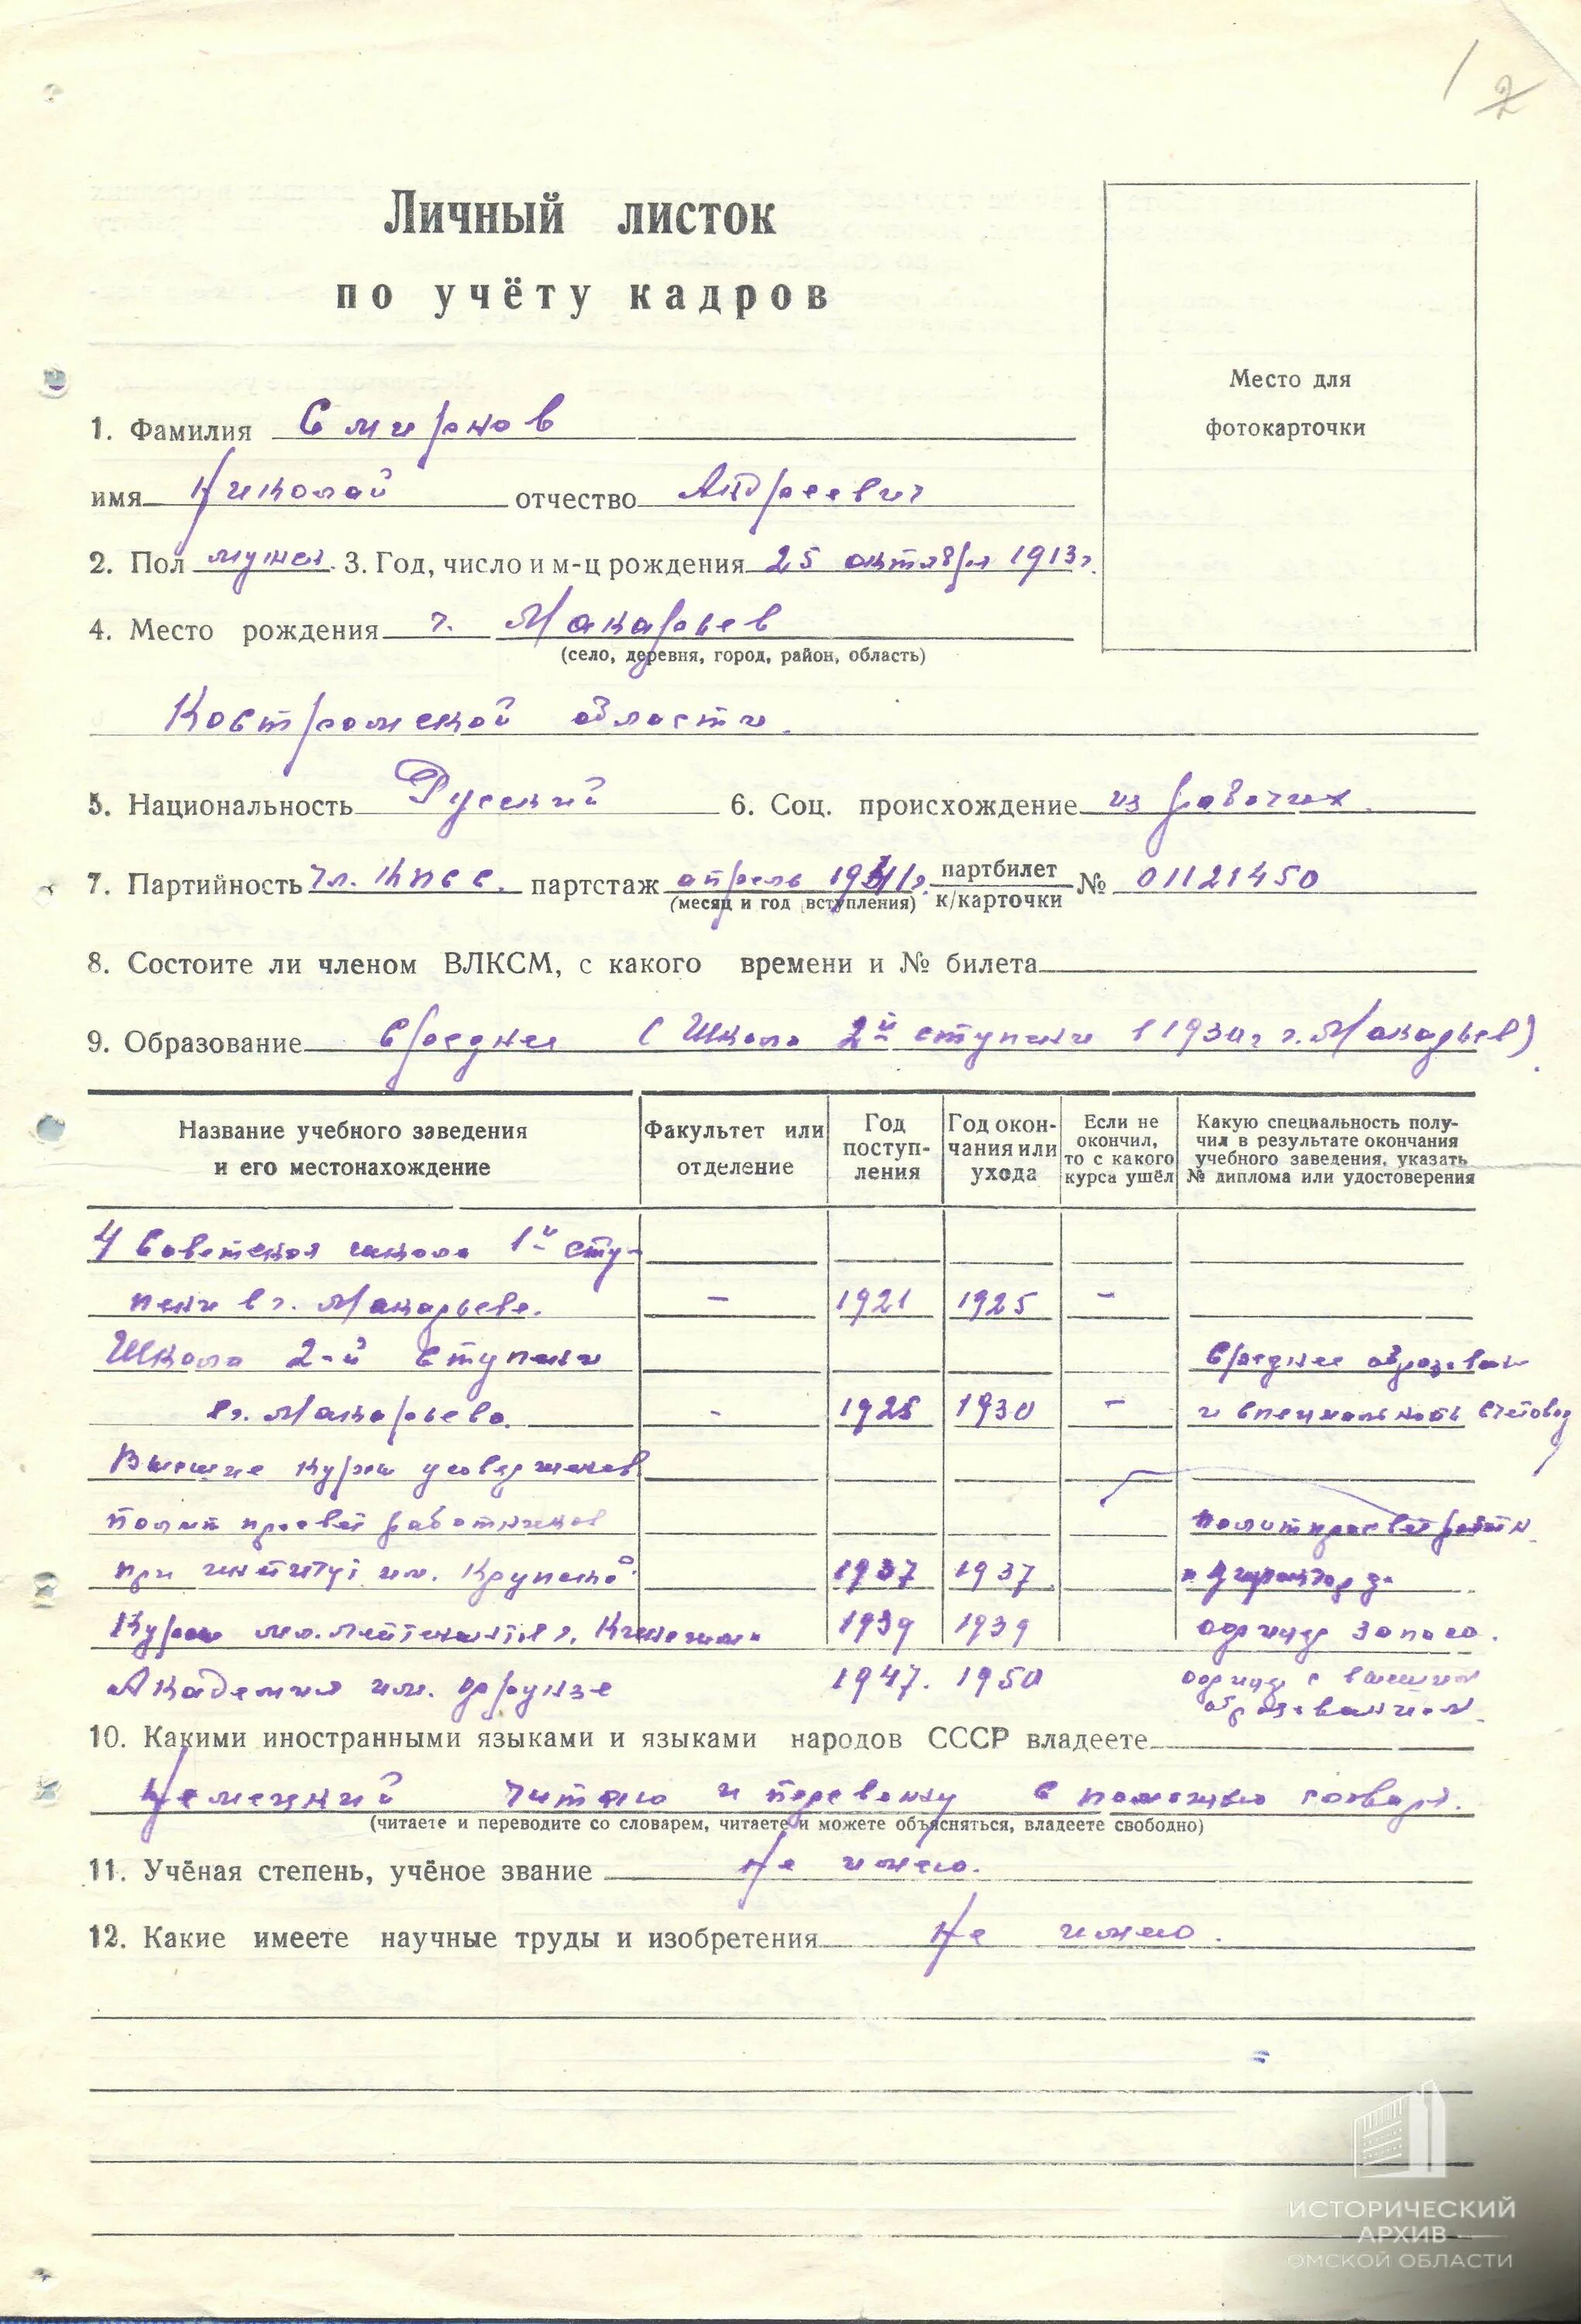 1 2
Личный листок
по учёту кадров
Место для
фотокарточки
1. Фамилия Смирнов
имя Николай отчество Андреевич
2. Пол мужск. 3. Год, число и м-ц рождения 25 октября 1913 г.
4. Место рождения г. Макарьев
(село, деревня, город, район, область)
Костромской области.
5. Национальность Русский 6. Соц. происхождение из рабочих.
7. Партийность чл. КПСС. партстаж апрель 1941 г. партбилет
к/карточки № 01121450
(месяц и год вступления)
8. Состоите ли членом ВЛКСМ, с какого времени и № билета
9. Образование Среднее (Школа 2й ступени в 1930 г г. Макарьев)
Название учебного заведения
и его местонахождение
Факультет или
отделение
Год
поступ-
ления
Год окон-
чания или
ухода
Если не
окончил,
то с какого
курса ушёл
Какую специальность полу-
чил в результате окончания
учебного заведения, указать
№ диплома или удостоверения
4 Советская школа 1й сту-
пени в г. Макарьеве. – 1921 1925 –
Школа 2-й ступени Среднее образован
в г. Макарьево. - 1925 1930 – и специальность счетовод
Высшие курсы усовершенств
полит просвет работников политпросвет работн
при институт им. Крупской 1937 1937
Курсы мл. лейтенантов г. Кинешма 1939 1939 офицер запаса.
Академия им. Фрунзе 1947. 1950 офицер с высшим
образованием.
10. Какими иностранными языками и языками народов СССР владеете
Немецкий читаю и перевожу с помощью словаря.
(читаете и переводите со словарем, читаете и можете объясняться, владеете свободно)
11. Учёная степень, учёное звание Не имею.
12. Какие имеете научные труды и изобретения Не имею.
ИСТОРИЧЕСКИЙ
АРХИВ
ОМСКОЙ ОБЛАСТИ